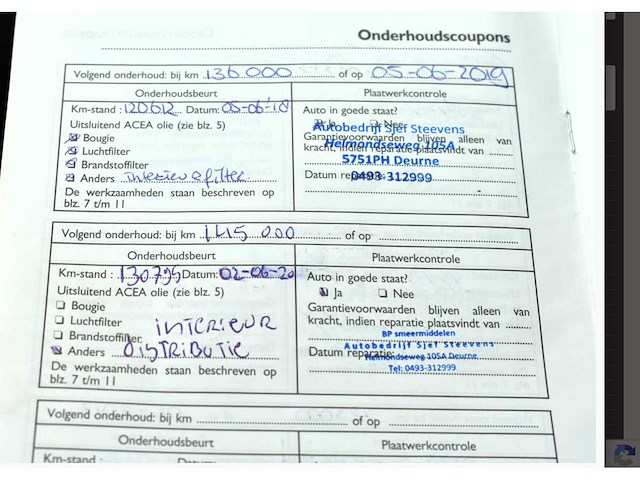 Onderhoudscoupons
Volgend onderhoud: bij km 136.000 of op 05-06-2019
Onderhoudsbeurt
Plaatwerkcontrole
Km-stand : 120.612 Datum: 05-06-'18
Uitsluitend ACEA olie (zie blz. 5)
Bougie
Luchtfilter
Brandstoffilter
Anders interieurfilter
De werkzaamheden staan beschreven op
blz. 7 t/m 11
Auto in goede staat?
Ja Nee
Autobedrijf Sjef Steevens
Garantievoorwaarden blijven alleen van
Helmondseweg 105A
kracht, indien reparatie plaatsvindt van
5751PH Deurne
Datum reparatie:
0493-312999
Volgend onderhoud: bij km 145.000 of op
Onderhoudsbeurt
Plaatwerkcontrole
Km-stand : 130.795 Datum: 02-06-20
Uitsluitend ACEA olie (zie blz. 5)
Bougie
Luchtfilter
Brandstoffilter
INTERIEUR
Anders DISTRIBUTIE
De werkzaamheden staan beschreven op
blz. 7 t/m 11
Auto in goede staat?
Ja Nee
Garantievoorwaarden blijven alleen van
kracht, indien reparatie plaatsvindt van
BP smeermiddelen
Autobedrijf Sjef Steevens
Datum reparatie:
Helmondseweg 105A Deurne
Tel: 0493-312999
Volgend onderhoud: bij km of op
Onderhoudsbeurt
Plaatwerkcontrole
Km-stand : Datum: